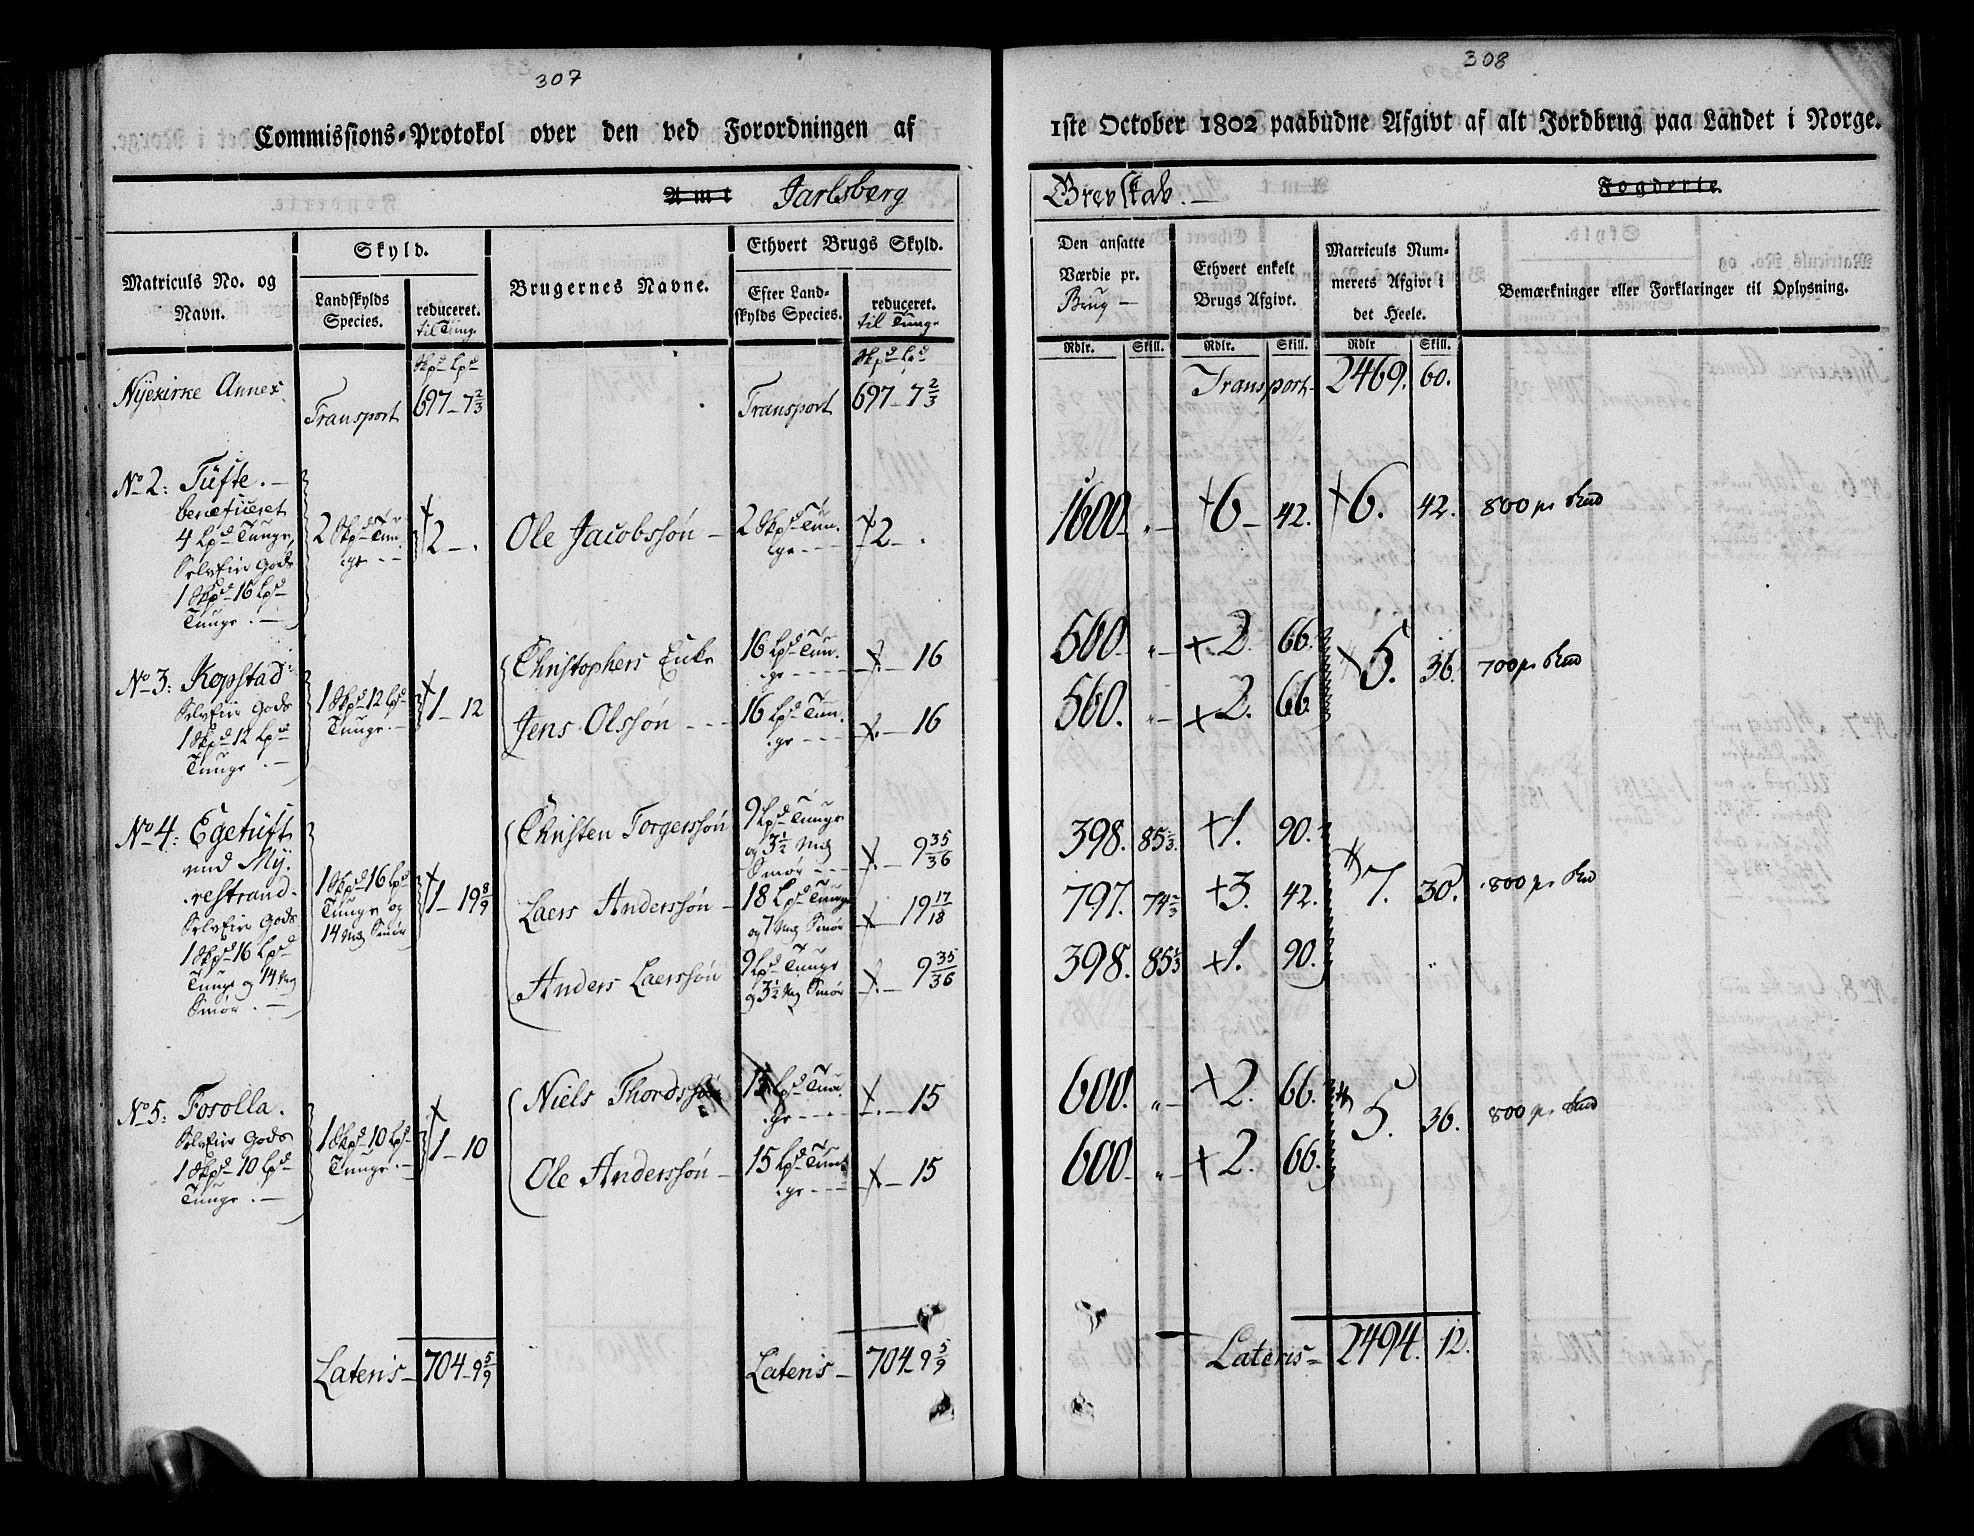 307
308
Commissions-Protokol over den ved Forordningen af
1ste October 1802 paabudne Afgivt af alt Jordbrug paa Landet i Norge.
Amt Jarlsberg
Grevskab. Fogderie.
Matriculs No. og Navn.
Skyld.
Landskylds Species.
reduceret. til Tunge
Brugernes Navne.
Ethvert Brugs Skyld.
Efter Landskylds Species.
reduceret. til Tunge
Den ansatte Værdie pr. Brug
Ethvert enkelt Brugs Afgivt.
Matriculs Nummerets Afgivt i det Heele.
Bemærkninger eller Forklaringer til Oplysning.
Rdlr. Skill. Rdlr. Skill. Rdlr Skill.
Skpd Lpd Skpd Lpd
Nyekirke Annex. Transport 697 - 7 2/3 Transport 697 - 7 2/3 Transport 2469. 60.
No 2: Tufte. -
beneficeret
4 Lpd Tunge,
Selveier Gods
1 Skpd 16 Lpd
Tunge. -
2 Skpd Tunge - - 2 - . Ole Jacobssøn - 2 Skpd Tunge - - - 2 - . 1600 - " - 6 - 42. 6. 42. 800 pr Skd
No 3: Kopstad
Selveier Gods
1 Skpd 12 Lpd
Tunge. -
1 Skpd 12 Lpd Tunge. - 1 - 12
Christophers Enke 16 Lpd Tunge - - - 16 560. " - 2. 66. 5. 36. 700 pr Skd
Jens Olssøn - - - 16 Lpd Tunge - - - 16 560. " - 2. 66.
No 4: Egetuft
med Myrestrand.
Selveier Gods
1 Skpd 16 Lpd
Tunge og 14 Mg
Smør. -
1 Skpd 16 Lpd Tunge og 14 Mg Smør 1 - 19 8/9
Christen Torgerssøn 9 Lpd Tunge og 3 1/2 Mg Smør - - - 9 35/36 398. 85 1/3. 1. 90. 7. 30. 800 pr Skd
Laers Anderssøn - 18 Lpd Tunge og 7 Mg Smør - 19 17/18 797. 74 2/3 3. 42.
Anders Laerssøn 9 Lpd Tunge og 3 1/2 Mg Smør - 9 35/36 398. 85 1/3 1. 90.
No 5: Fosolla.
Selveier Gods
1 Skpd 10 Lpd
Tunge. -
1 Skpd 10 Lpd Tunge. - 1 - 10
Niels Thordssøn 15 Lpd Tunge - - - 15 600. " - 2. 66. 5. 36. 800 pr Skd
Ole Anderssøn - 15 Lpd Tunge - - - 15 600 - " - 2. 66.
Lateris - 704 - 9 5/9 Lateris - 704 - 9 5/9 Lateris - 2494. 12.